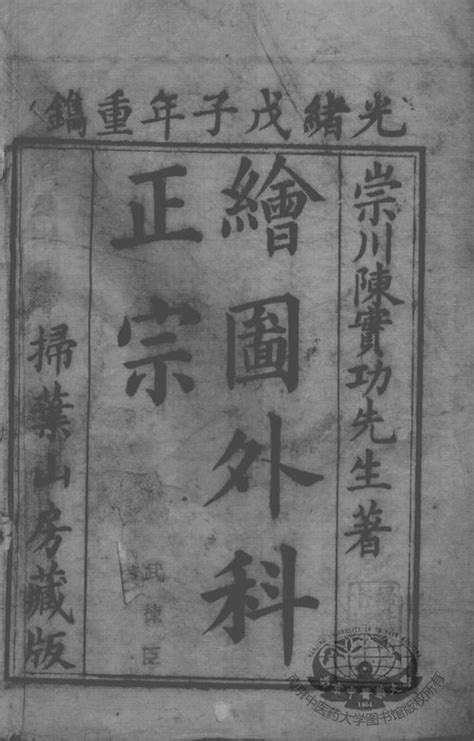 光緒戊子年重鐫
崇川陳實功先生著
繪圖外科
正宗
掃葉山房藏版
武棟臣
南京中医药大学图书馆版权所有